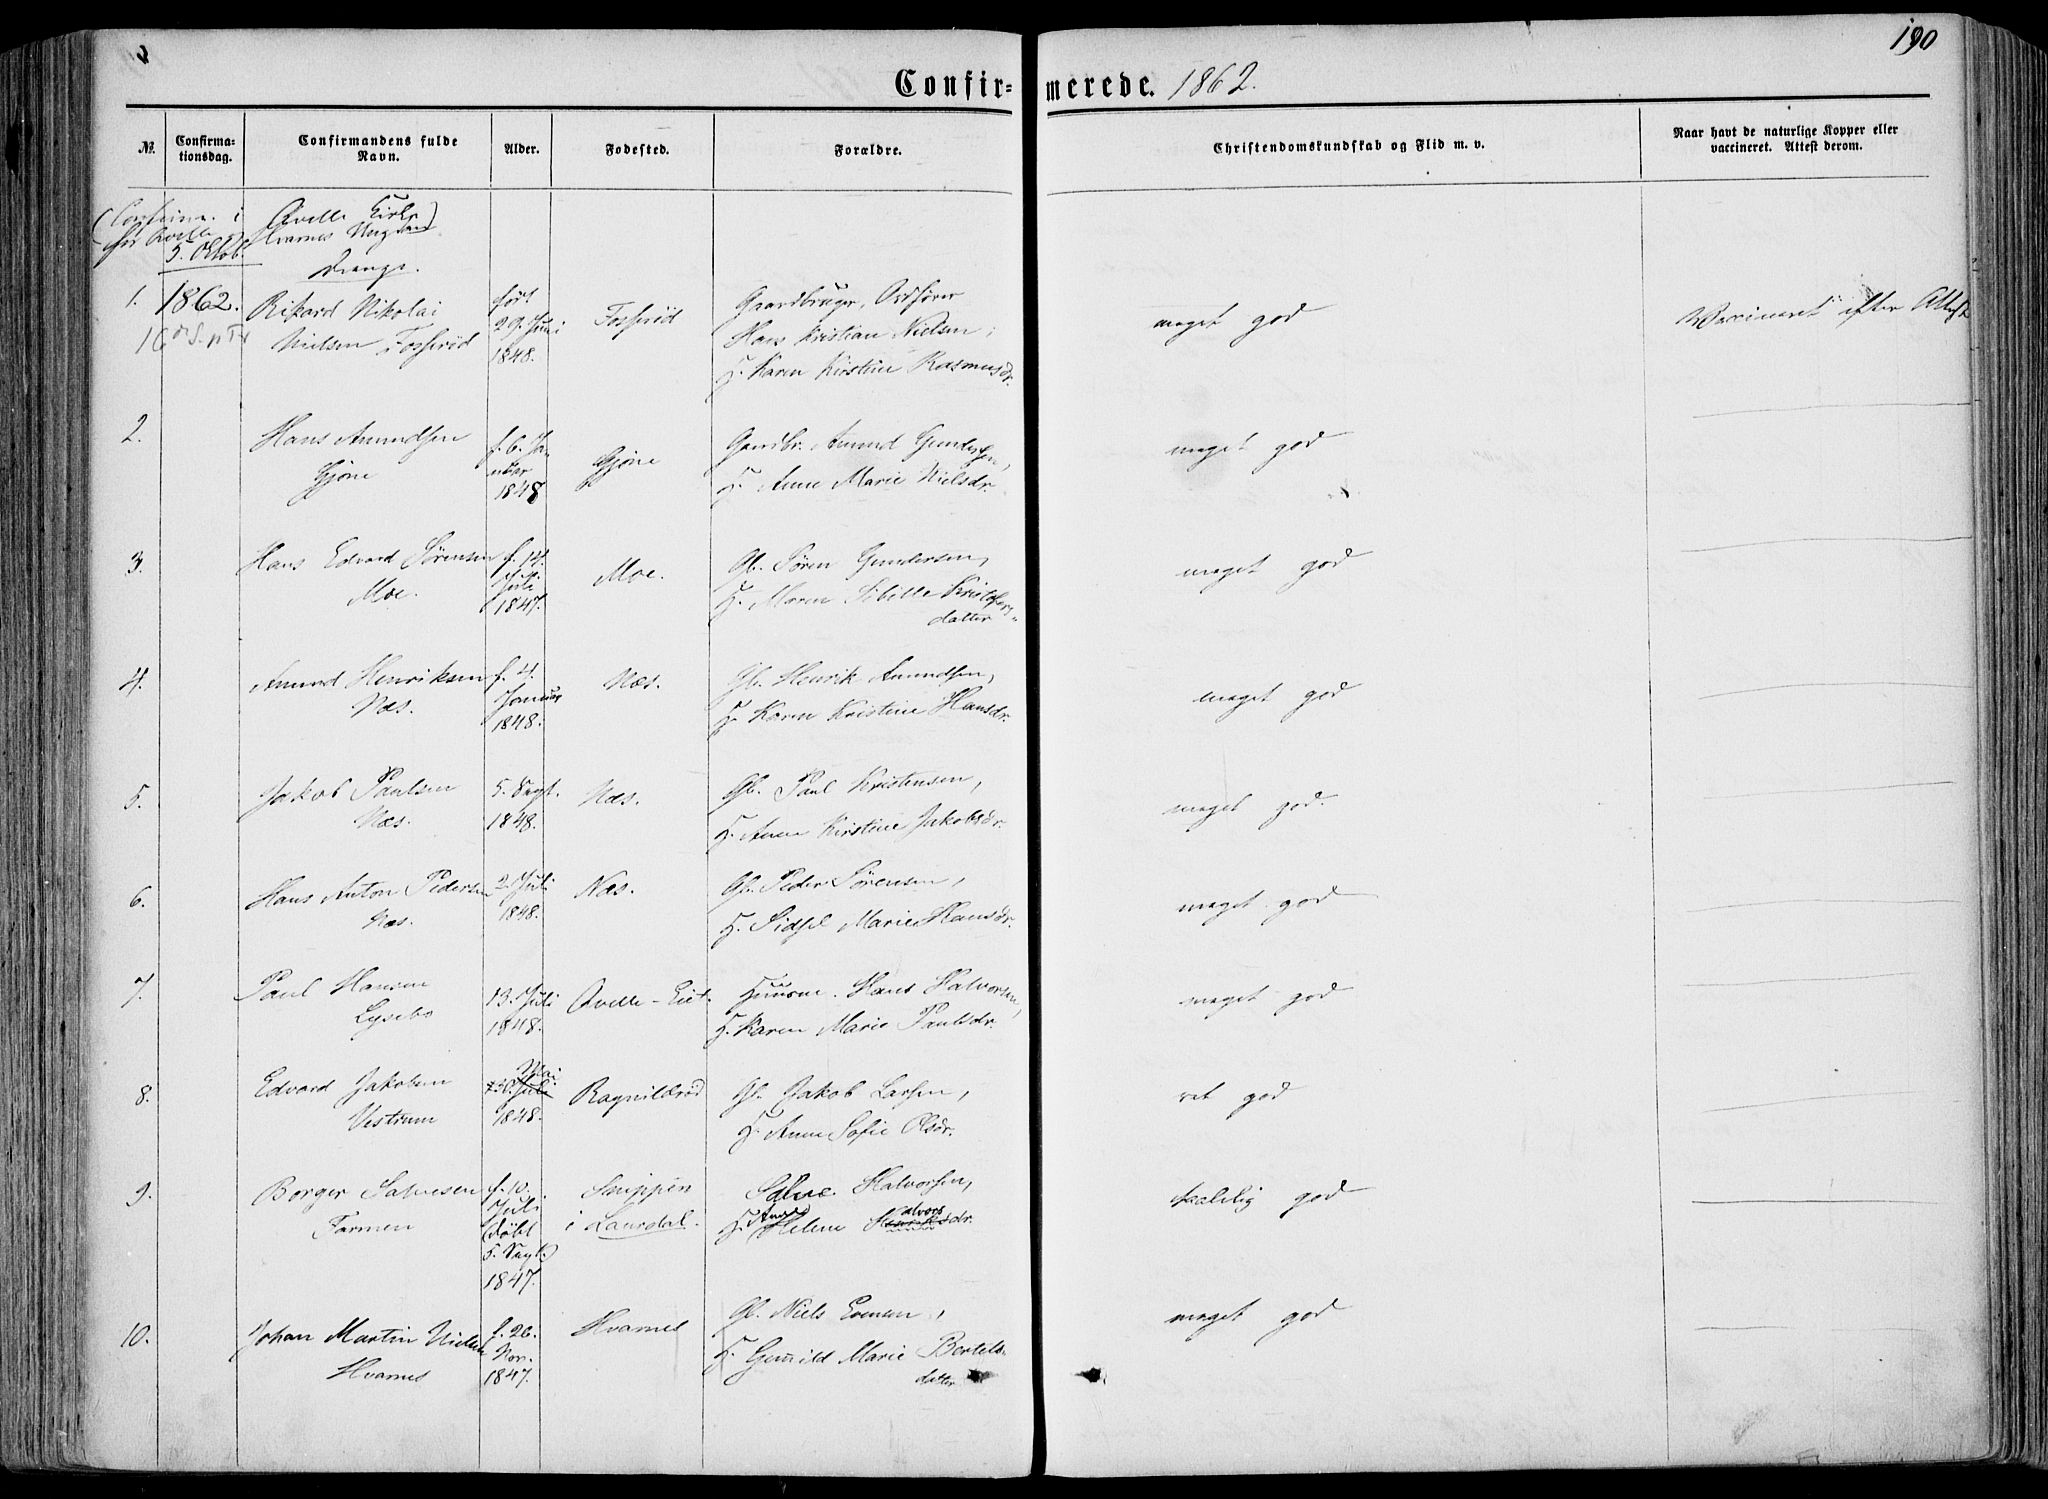 190
Confir= merede. 1862.
No. Confirma-tionsdag. Confirmandens fulde Navn. Alder. Fodested. Forældre. Christendomskundskab og Flid m. v. Naar havt de naturlige Kopper eller vaccineret. Attest derom.
i Qvelle Kirke
for Qvelle og Hvarnes
5. Octob.
Drenge.
1. 1862. Rikard Nikolai født Fosserød Gaardbruger, Ordfører meget god Vaccineret efter Attest
Nielsen Fosserød 29. Juni Hans Kristian Nielsen;
1848. H. Karen Kirstine Rasmusdr.
2. Hans Amundsen f. 6. Ja- Gjöne Gaardbr. Amund Gundersen, meget god
Gjöne nuar H. Anne Marie Nielsdr.
1848
3. Hans Edvard Sörensen f. 14. Moe. Gb. Sören Gundersen, meget god
Moe. Juli H. Maren Sibille Kristofers
1847. datter
4. Amund Henriksen f. 4. Næs. Gb. Henrik Amundsen, meget god
Næs. Januar H. Karen Kristine Hansdr.
1848.
5. Jakob Paulsen 5. Næs. Gb. Paul Kristensen, meget god.
Næs. 1848. H. Anne Kirstine Jakobsdr.
6. Hans Anton Pedersen 2. Juli Næs. Gb. Peder Sörensen, meget god
Næs. 1848. H. Sidsel Marie Hansdr.
7. Paul Hansen 13. Juli Qvelle-Eie Huusm. Hans Halvorsen, meget god
Lysebo 1848. H. Karen Marie Paulsdr.
8. Edvard Jakobsen 30. Juli Mai Ragnildrød Gb. Jakob Larsen, ret god
Vestrum 1848. H. Anne Sofie Olsdr.
9. Borger Salvesen f. 10. Snippen Salve Halvorsen, taalelig god
Farmen Juli i Laurdal. H. Helene Halvorsdr.
(døbt
5.
1847.
10. Johan Martin Nielsen f. 26. Hvarnes Gb. Niels Evensen, meget god
Hvarnes Nov. H. Gunild Marie Bertels-
1847. datter